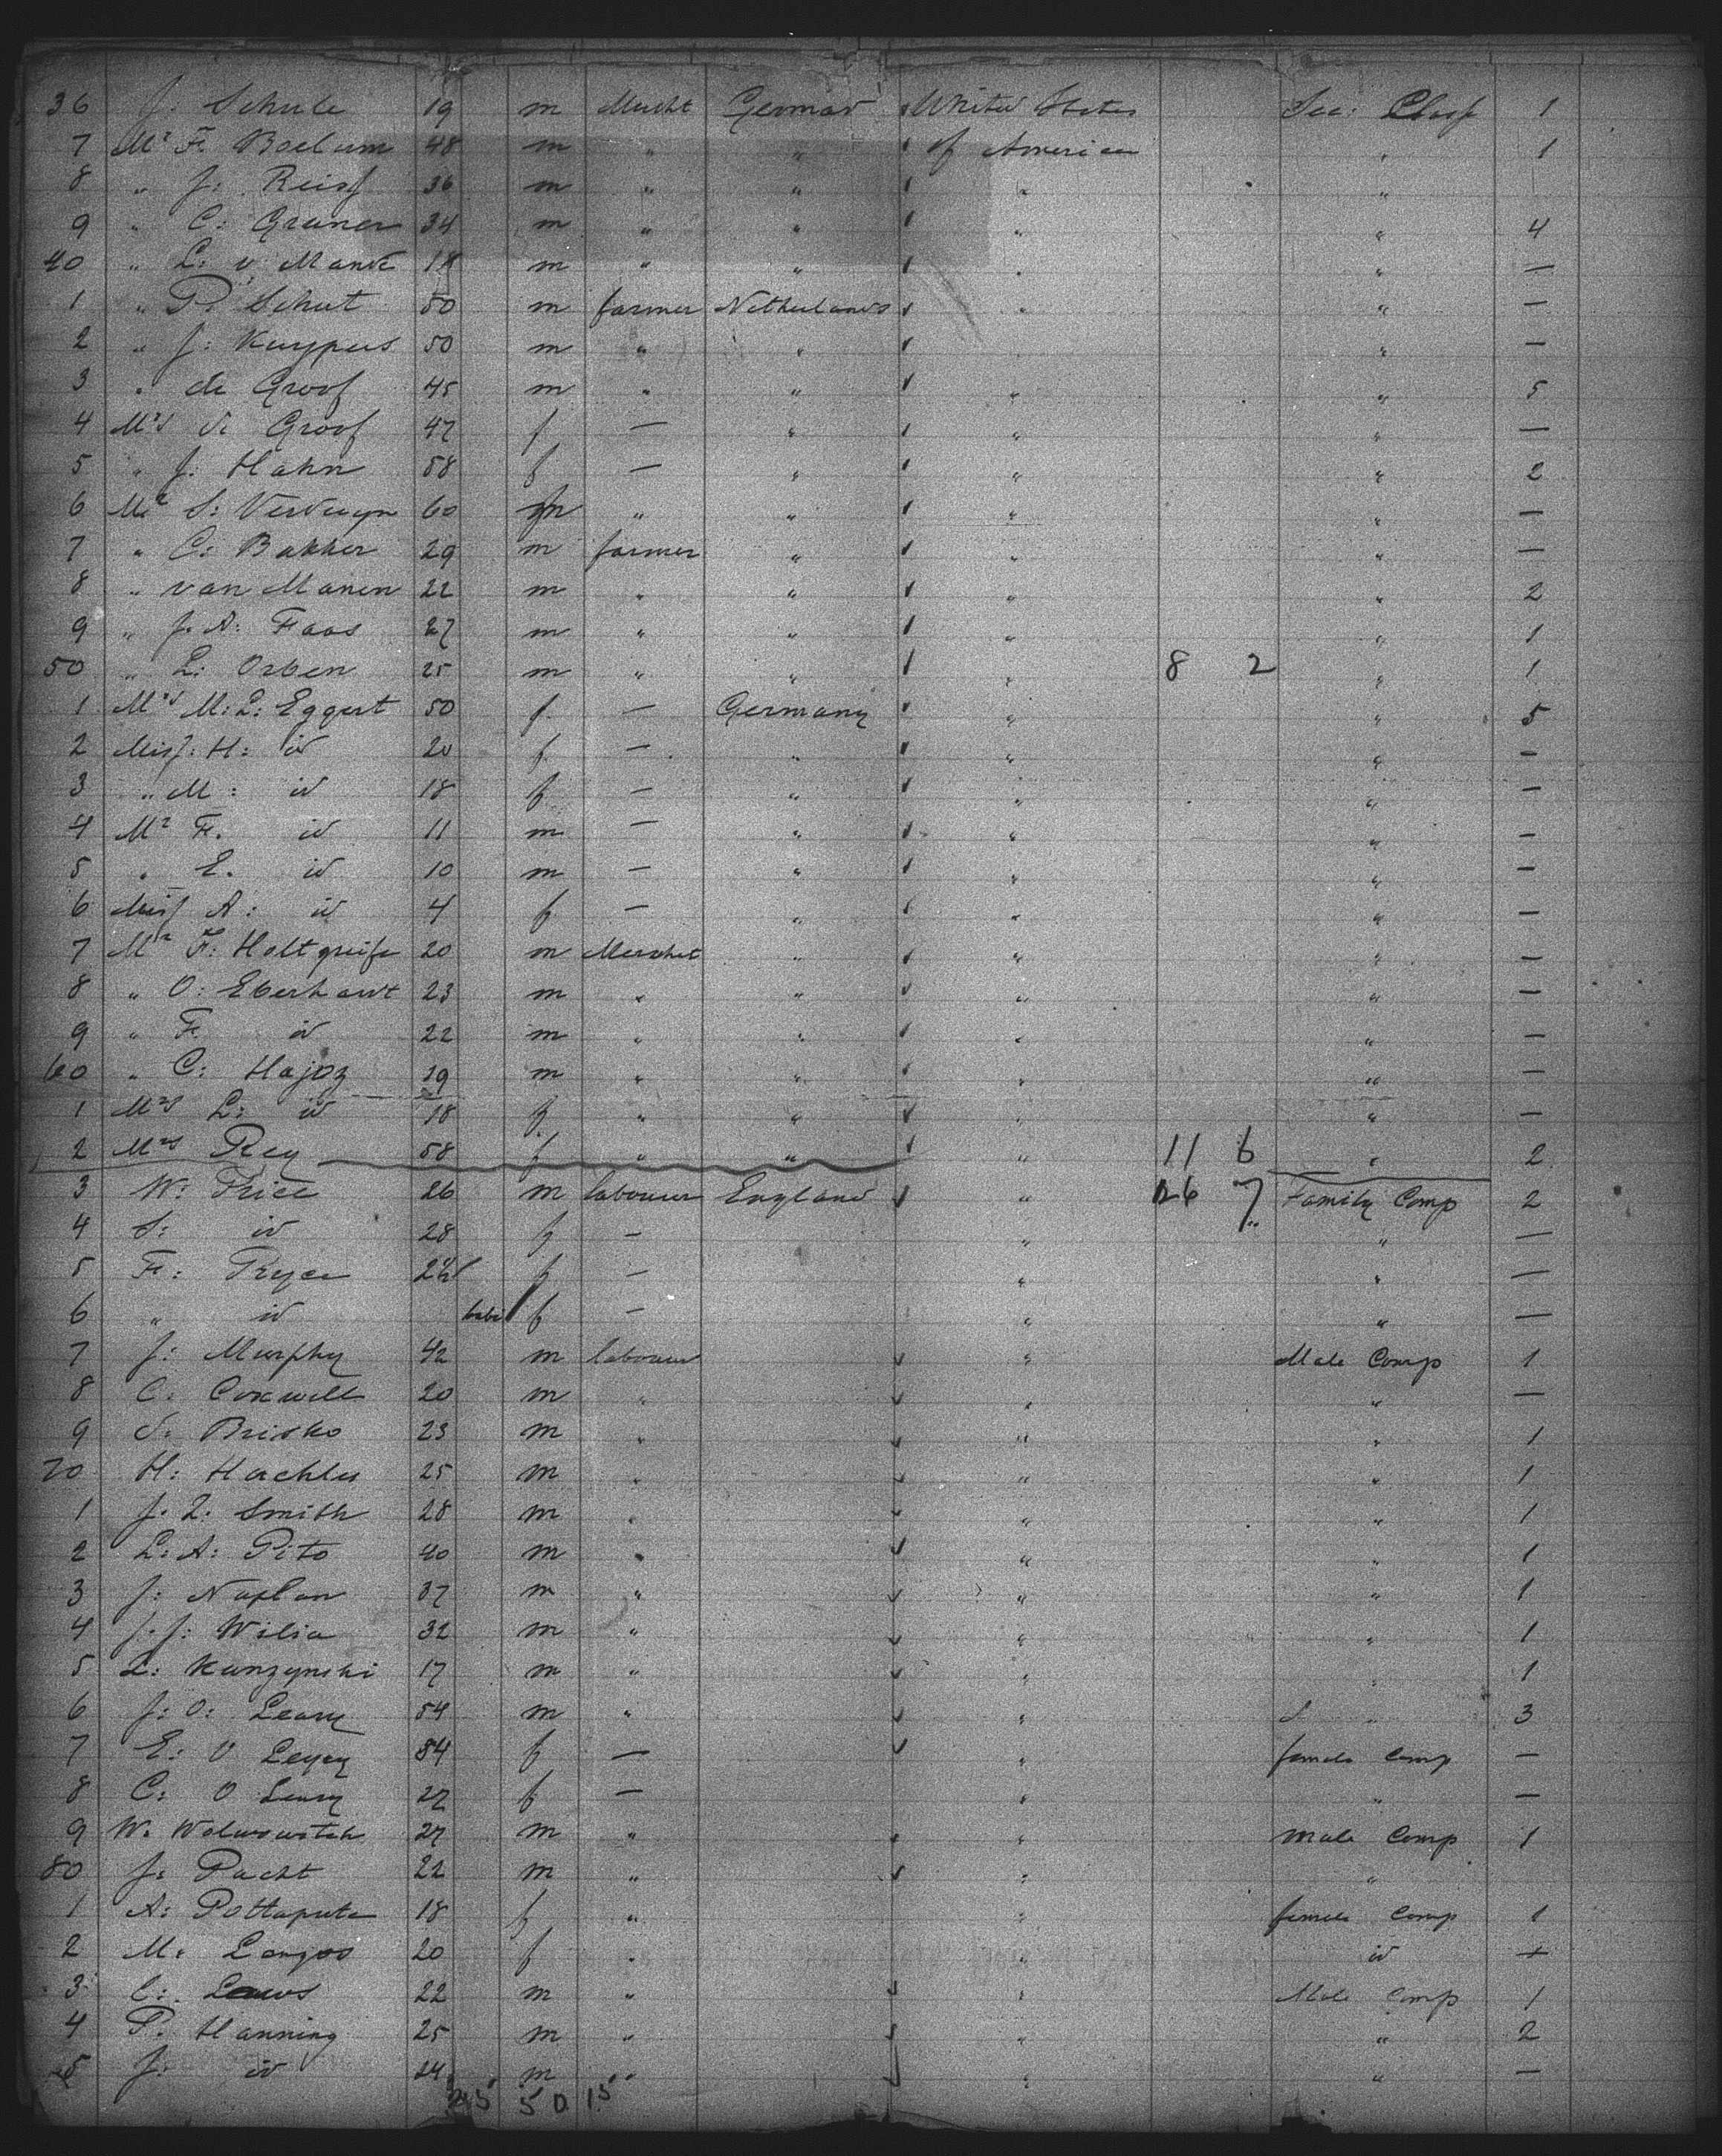 36 J. Schule 19 m Mucht German United States Sec: Class 1
7 Mr F. Boelum 48 m " " of American " 1
8 " J: Reiss 36 m " " " "
9 " C: Gruner 34 m " " " " 4
40 " L: v. Manve m " " " " —
1 " P. Schut 50 m farmer Netherlands " " —
2 " J: Kuypers 50 m " " " " —
3 " de Groof 45 m " " " " 5
4 Mrs de Groof 47 f — " " " —
5 " J: Hahn 58 f — " " " 2
6 Mr S: Verduyn 60 m " " " " —
7 " C: Bakker 29 m farmer " " " —
8 " van Manen 22 m " " " " 2
9 " J. A: Faas 27 m " " " " 1
50 " L: Orben 25 m " " " 8 2 " 1
1 Mrs M: L: Eggert 50 f — Germany " " 5
2 Miss: H: id 20 f — " " " —
3 " M: id 18 f — " " " —
4 Mr F. id 11 m — " " " —
5 " E. id 10 m — " " " —
6 Miss A: id 4 f — " " " —
7 Mr F: Holtgreife 20 m Merchet " " " —
8 " O: Eberhardt 23 m " " " " —
9 " F. id 22 m " " " " —
60 " C: Hajoz 19 m " " " " —
1 Mrs L: id 18 f " " " " —
2 Mrs Rey 58 f " " " 11 6 " 2
3 W: Price 26 m labourer England " 26 7 Family Comp 2
4 S: id 28 f — " " —
5 F: Pryce f — " " —
6 " id babi f — " " —
7 J: Murphy 42 m labourer " Male Comp 1
8 C: Coxwell 20 m " " " —
9 S: Brisko 23 m " " " 1
70 H: Hachler 25 m " " " 1
1 J. L. Smith 28 m " " " 1
2 L: A: Pito 40 m " " " 1
3 J: Naplan 37 m " " " 1
4 J. J: Wilia 32 m " " " 1
5 L: Kunzynski 17 m " " " 1
6 J: O: Leary 54 m " " " 3
7 E: O Leyey 54 f — " female Comp —
8 C: O Leary 27 f — " " —
9 W. Wolwowitch 27 m " " male Comp 1
80 J: Pacht 22 m " " "
1 A: Pottaputa 18 f " " female Comp 1
2 M: Langos 20 f " " id +
3 C: Laws 22 m " " Male Comp 1
4 P. Hanning 25 m " " " 2
5 J: id 24 m " " " —
45 50 15